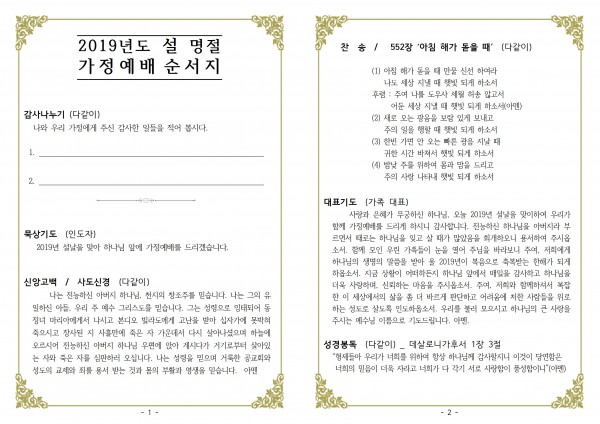 2019년도 설 명절
가정예배 순서지
감사나누기 (다같이)
나와 우리 가정에게 주신 감사한 일들을 적어 봅시다.
1.
2.
묵상기도 (인도자)
2019년 설날을 맞아 하나님 앞에 가정예배를 드리겠습니다.
신앙고백 / 사도신경 (다같이)
나는 전능하신 아버지 하나님, 천지의 창조주를 믿습니다. 나는 그의 유
일하신 아들, 우리 주 예수 그리스도를 믿습니다. 그는 성령으로 잉태되어 동
정녀 마리아에게서 나시고 본디오 빌라도에게 고난을 받아 십자가에 못박혀
죽으시고 장사된 지 사흘만에 죽은 자 가운데서 다시 살아나셨으며 하늘에
오르시어 전능하신 아버지 하나님 우편에 앉아 계시다가 거기로부터 살아있
는 자와 죽은 자를 심판하러 오십니다. 나는 성령을 믿으며 거룩한 공교회와
성도의 교제와 죄를 용서 받는 것과 몸의 부활과 영생을 믿습니다. 아멘
- 1 -
찬 송 / 552장 '아침 해가 돋을 때' (다같이)
(1) 아침 해가 돋을 때 만물 신선 하여라
나도 세상 지낼 때 햇빛 되게 하소서
후렴 : 주여 나를 도우사 세월 허송 않고서
어둔 세상 지낼 때 햇빛 되게 하소서(아멘)
(2) 새로 오는 광음을 보람 있게 보내고
주의 일을 행할 때 햇빛 되게 하소서
(3) 한번 가면 안 오는 빠른 광음 지날 때
귀한 시간 바쳐서 햇빛 되게 하소서
(4) 밤낮 주를 위하여 몸과 맘을 드리고
주의 사랑 나타내 햇빛 되게 하소서
대표기도 (가족 대표)
사랑과 은혜가 무궁하신 하나님, 오늘 2019년 설날을 맞이하여 우리가
함께 가정예배를 드리게 하시니 감사합니다. 전능하신 하나님을 아버지라 부
르면서 때로는 하나님을 잊고 살 때가 많았음을 회개하오니 용서하여 주시옵
소서. 함께 모인 우리 가족들이 눈을 열어 주님을 바라보니 주여, 저희에게
하나님의 생명의 말씀을 받아 올 2019년이 복음으로 축복받는 한해가 되게
하옵소서. 지금 상황이 어떠하든지 하나님 앞에서 매일을 감사하고 하나님을
더욱 사랑하며, 신뢰하는 마음을 주시옵소서. 주여, 저희와 함께하셔서 복잡
한 이 세상에서의 삶을 좀 더 바르게 판단하고 어려움에 처한 사람들을 위로
하는 성도로 살도록 인도하옵소서. 우리를 불러 모으시고 하나님의 큰 사랑을
주시는 예수님 이름으로 기도드립니다. 아멘.
성경봉독 (다같이) _ 데살로니가후서 1장 3절
"형제들아 우리가 너희를 위하여 항상 하나님께 감사할지니 이것이 당연함은
너희의 믿음이 더욱 자라고 너희가 다 각기 서로 사랑함이 풍성함이니"(아멘)
- 2 -